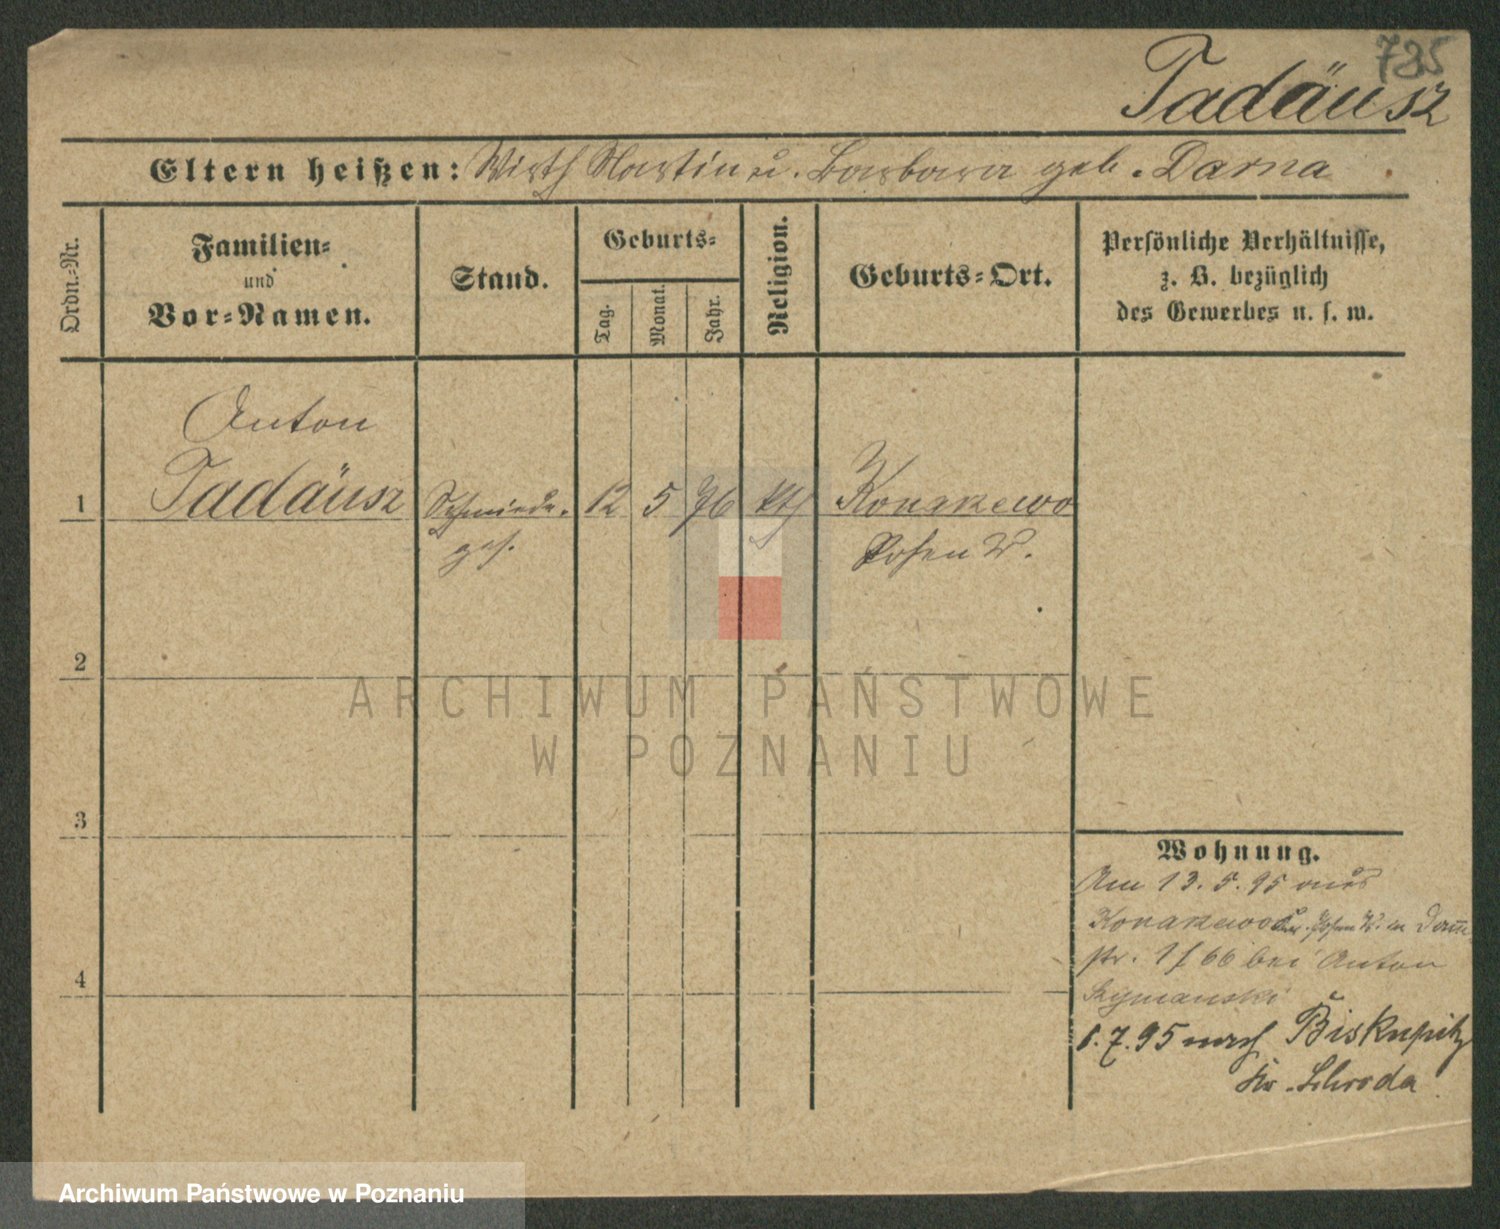 785
Tadäusz
Eltern heißen: Wirth Martin u. Barbara geb. Darna
Ordn.-Nr.
Familien-
und
Vor-Namen.
Stand.
Geburts-
Tag.
Monat.
Jahr.
Religion.
Geburts-Ort.
Persönliche Verhältnisse,
z. B. bezüglich
des Gewerbes u. s. w.
Anton
1 Tadäusz Schmiede- 12 5 76 kth Konarzewo
ges. Posen W.
2
3
4
Wohnung.
Am 13. 5. 95 aus
Konarzewo Posen W. in
str. 1/66 bei Anton
Szymanski
1. 7. 95 nach Biskupitz
Kr. Schroda
ARCHIWUM PAŃSTWOWE
W POZNANIU
Archiwum Państwowe w Poznaniu